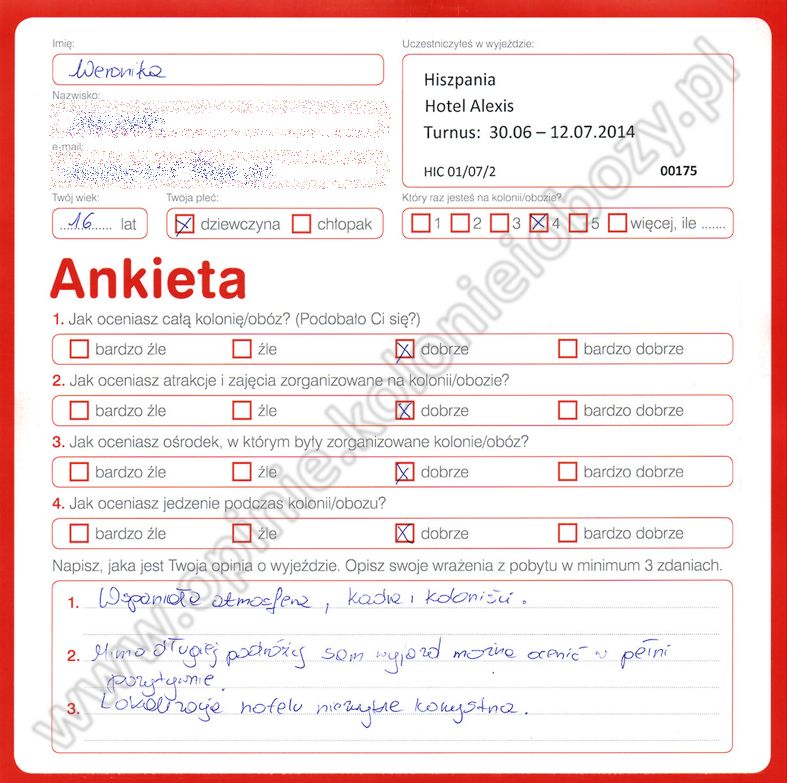 Imię:
Weronika
Nazwisko:
e-mail:
Twój wiek:
16 lat
Twoja płeć:
dziewczyna chłopak
Uczestniczyłeś w wyjeździe:
Hiszpania
Hotel Alexis
Turnus: 30.06 – 12.07.2014
HIC 01/07/2 00175
Który raz jesteś na kolonii/obozie?
1 2 3 4 5 więcej, ile .......
Ankieta
1. Jak oceniasz całą kolonię/obóz? (Podobało Ci się?)
bardzo źle źle dobrze bardzo dobrze
2. Jak oceniasz atrakcje i zajęcia zorganizowane na kolonii/obozie?
bardzo źle źle dobrze bardzo dobrze
3. Jak oceniasz ośrodek, w którym były zorganizowane kolonie/obóz?
bardzo źle źle dobrze bardzo dobrze
4. Jak oceniasz jedzenie podczas kolonii/obozu?
bardzo źle źle dobrze bardzo dobrze
Napisz, jaka jest Twoja opinia o wyjeździe. Opisz swoje wrażenia z pobytu w minimum 3 zdaniach.
1. Wspaniała atmosfera, kadra i koloniści.
2. Mimo długiej podróży sam wyjazd można ocenić w pełni
pozytywnie.
3. Lokalizacja hotelu niezwykle korzystna.
www.opinie.kolonieiobozy.pl